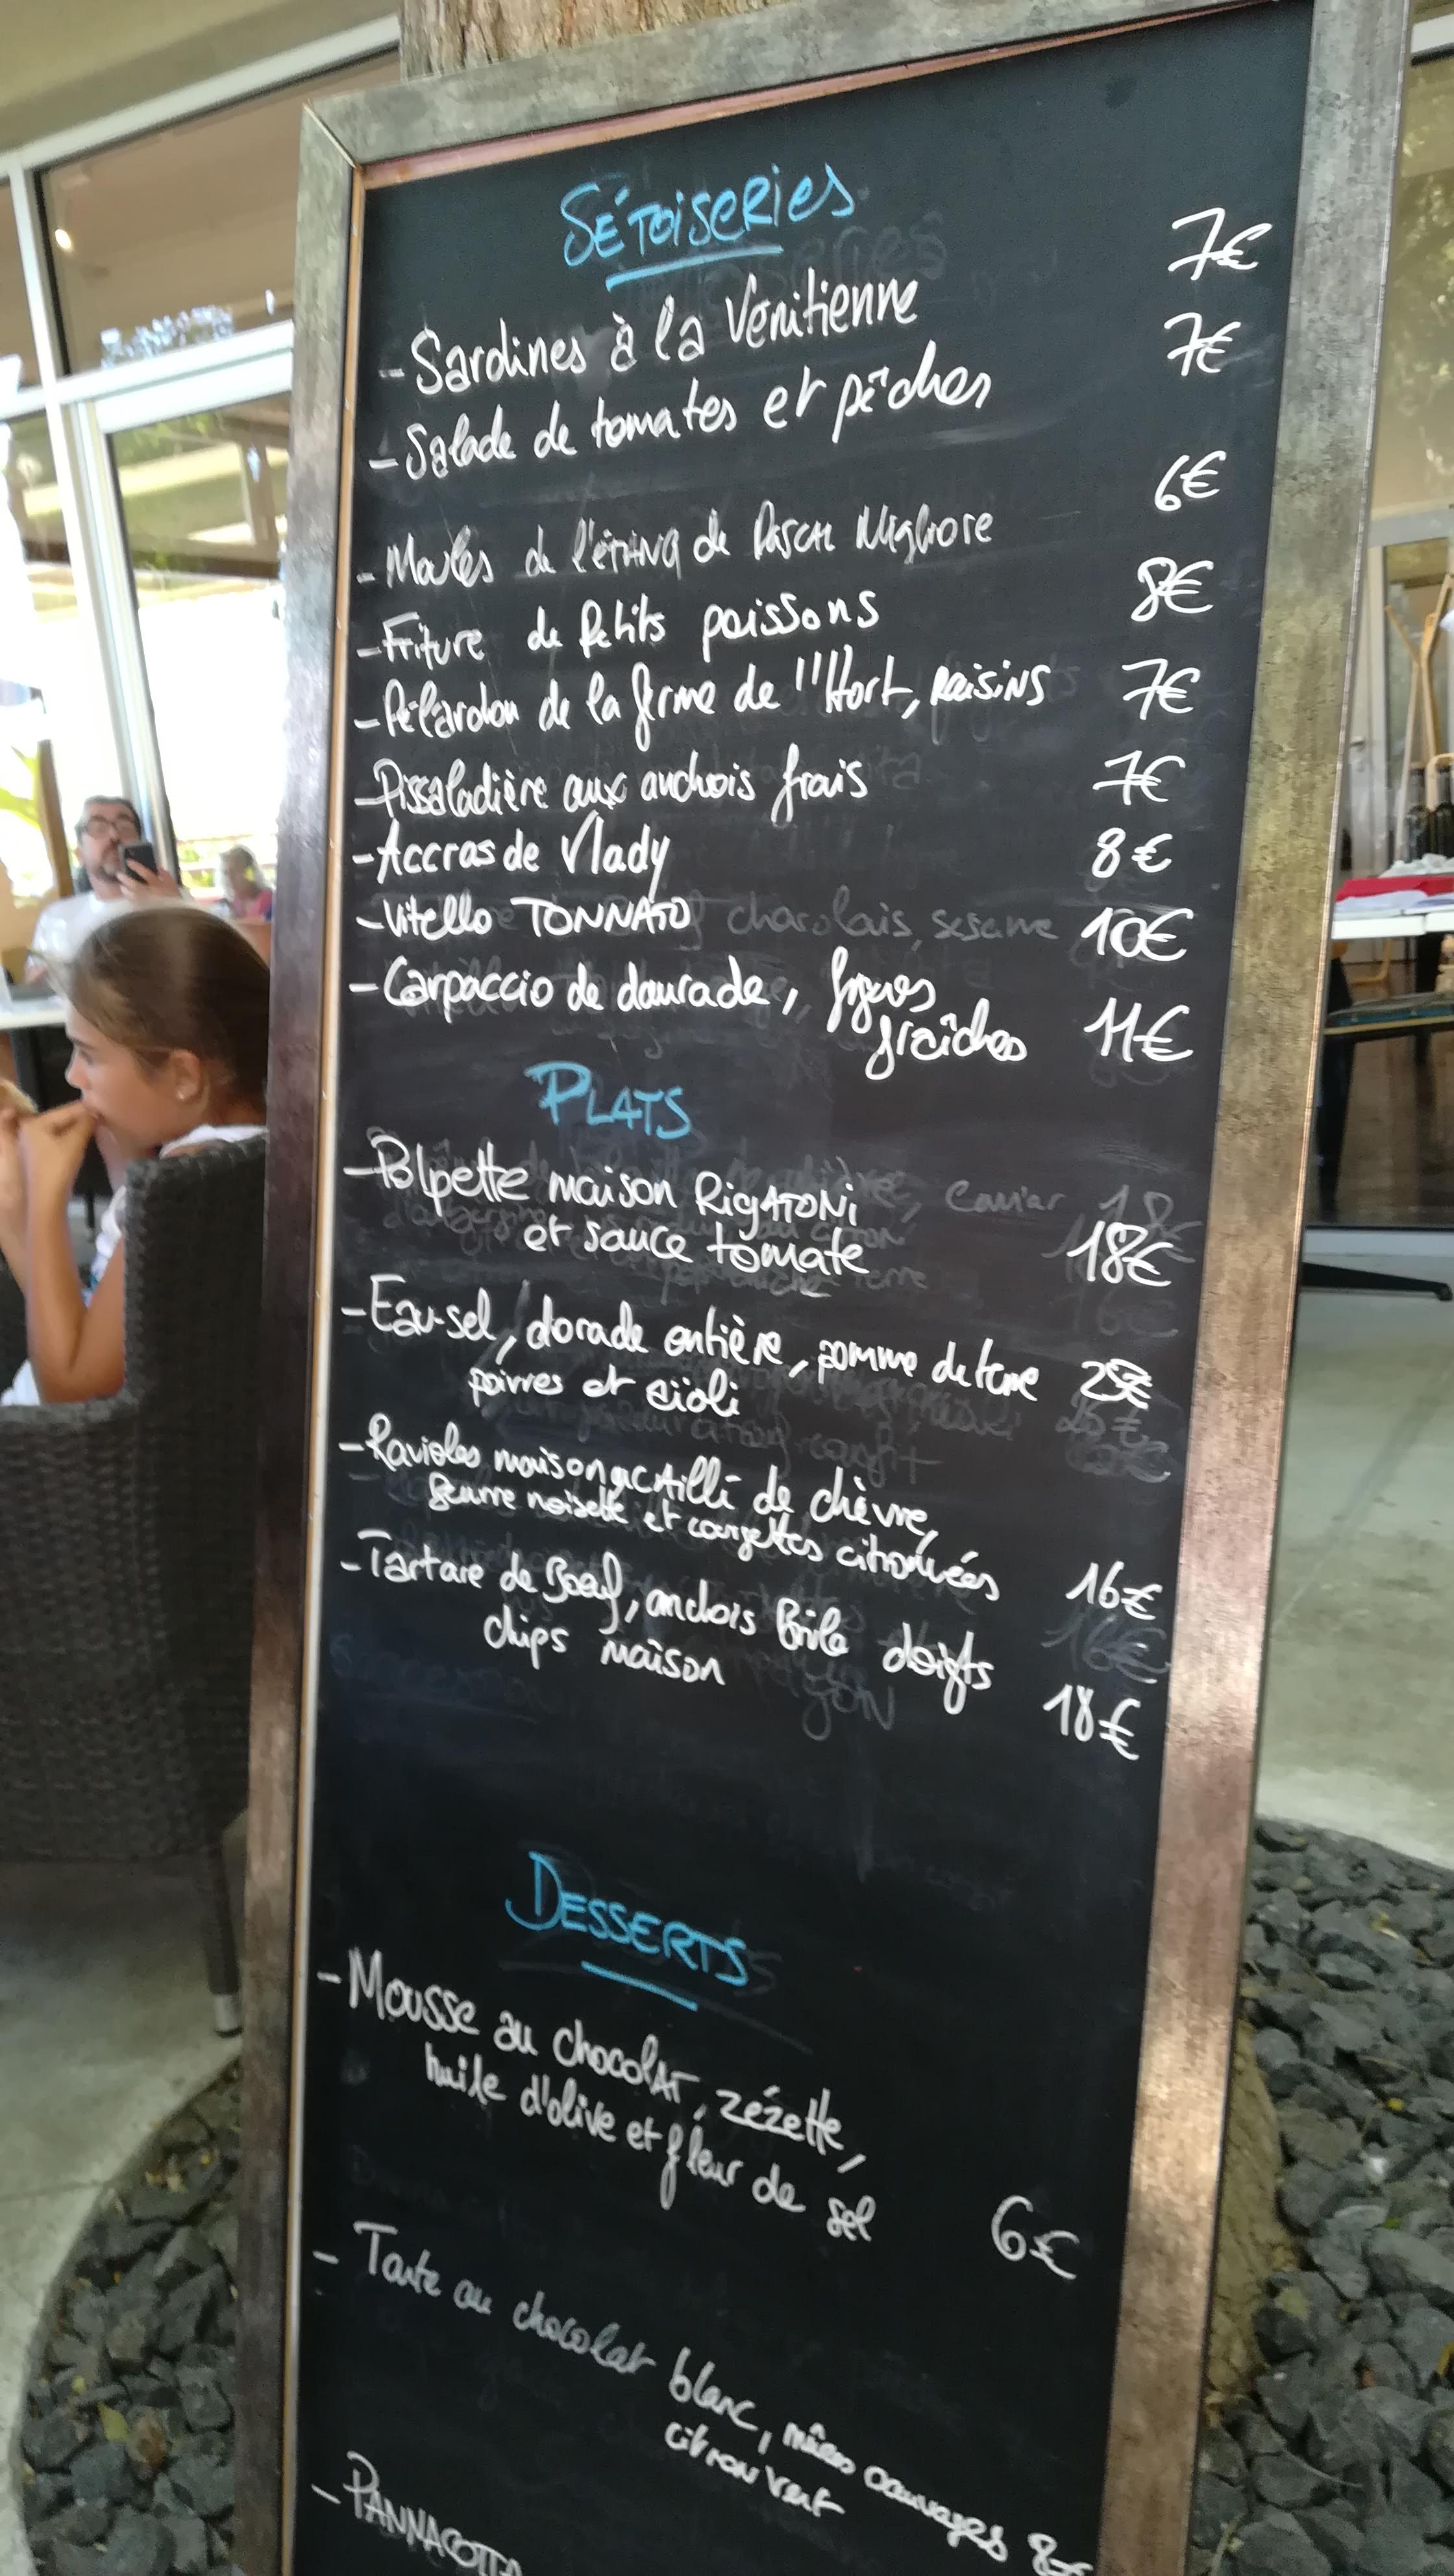 SÉTOISERIES
- Sardines à la Vénitienne 7€
- Salade de tomates et pêches 7€
- Moules de l'étang de Pascal Migliore 6€
- Friture de petits poissons 8€
- Pélardon de la ferme de l'Hort, raisins 7€
- Pissaladière aux anchois frais 7€
- Accras de Vlady 8€
- Vitello TONNATO 10€
charolais, sesame
- Carpaccio de daurade, figues
fraîches 11€
PLATS
- Polpette maison RIGATONI
et sauce tomate 18€
- Eau-sel, dorade entière, pomme de terre 25€
poivres et aïoli
- Ravioles maison de chèvre,
Beurre noisette et courgettes citronnées 16€
- Tartare de Boeuf, anchois doigts
chips maison 18€
DESSERTS
- Mousse au chocolat, zézette,
huile d'olive et fleur de sel 6€
- Tarte au chocolat blanc, mûres sauvages 8€
citron vert
- PANNACOTTA